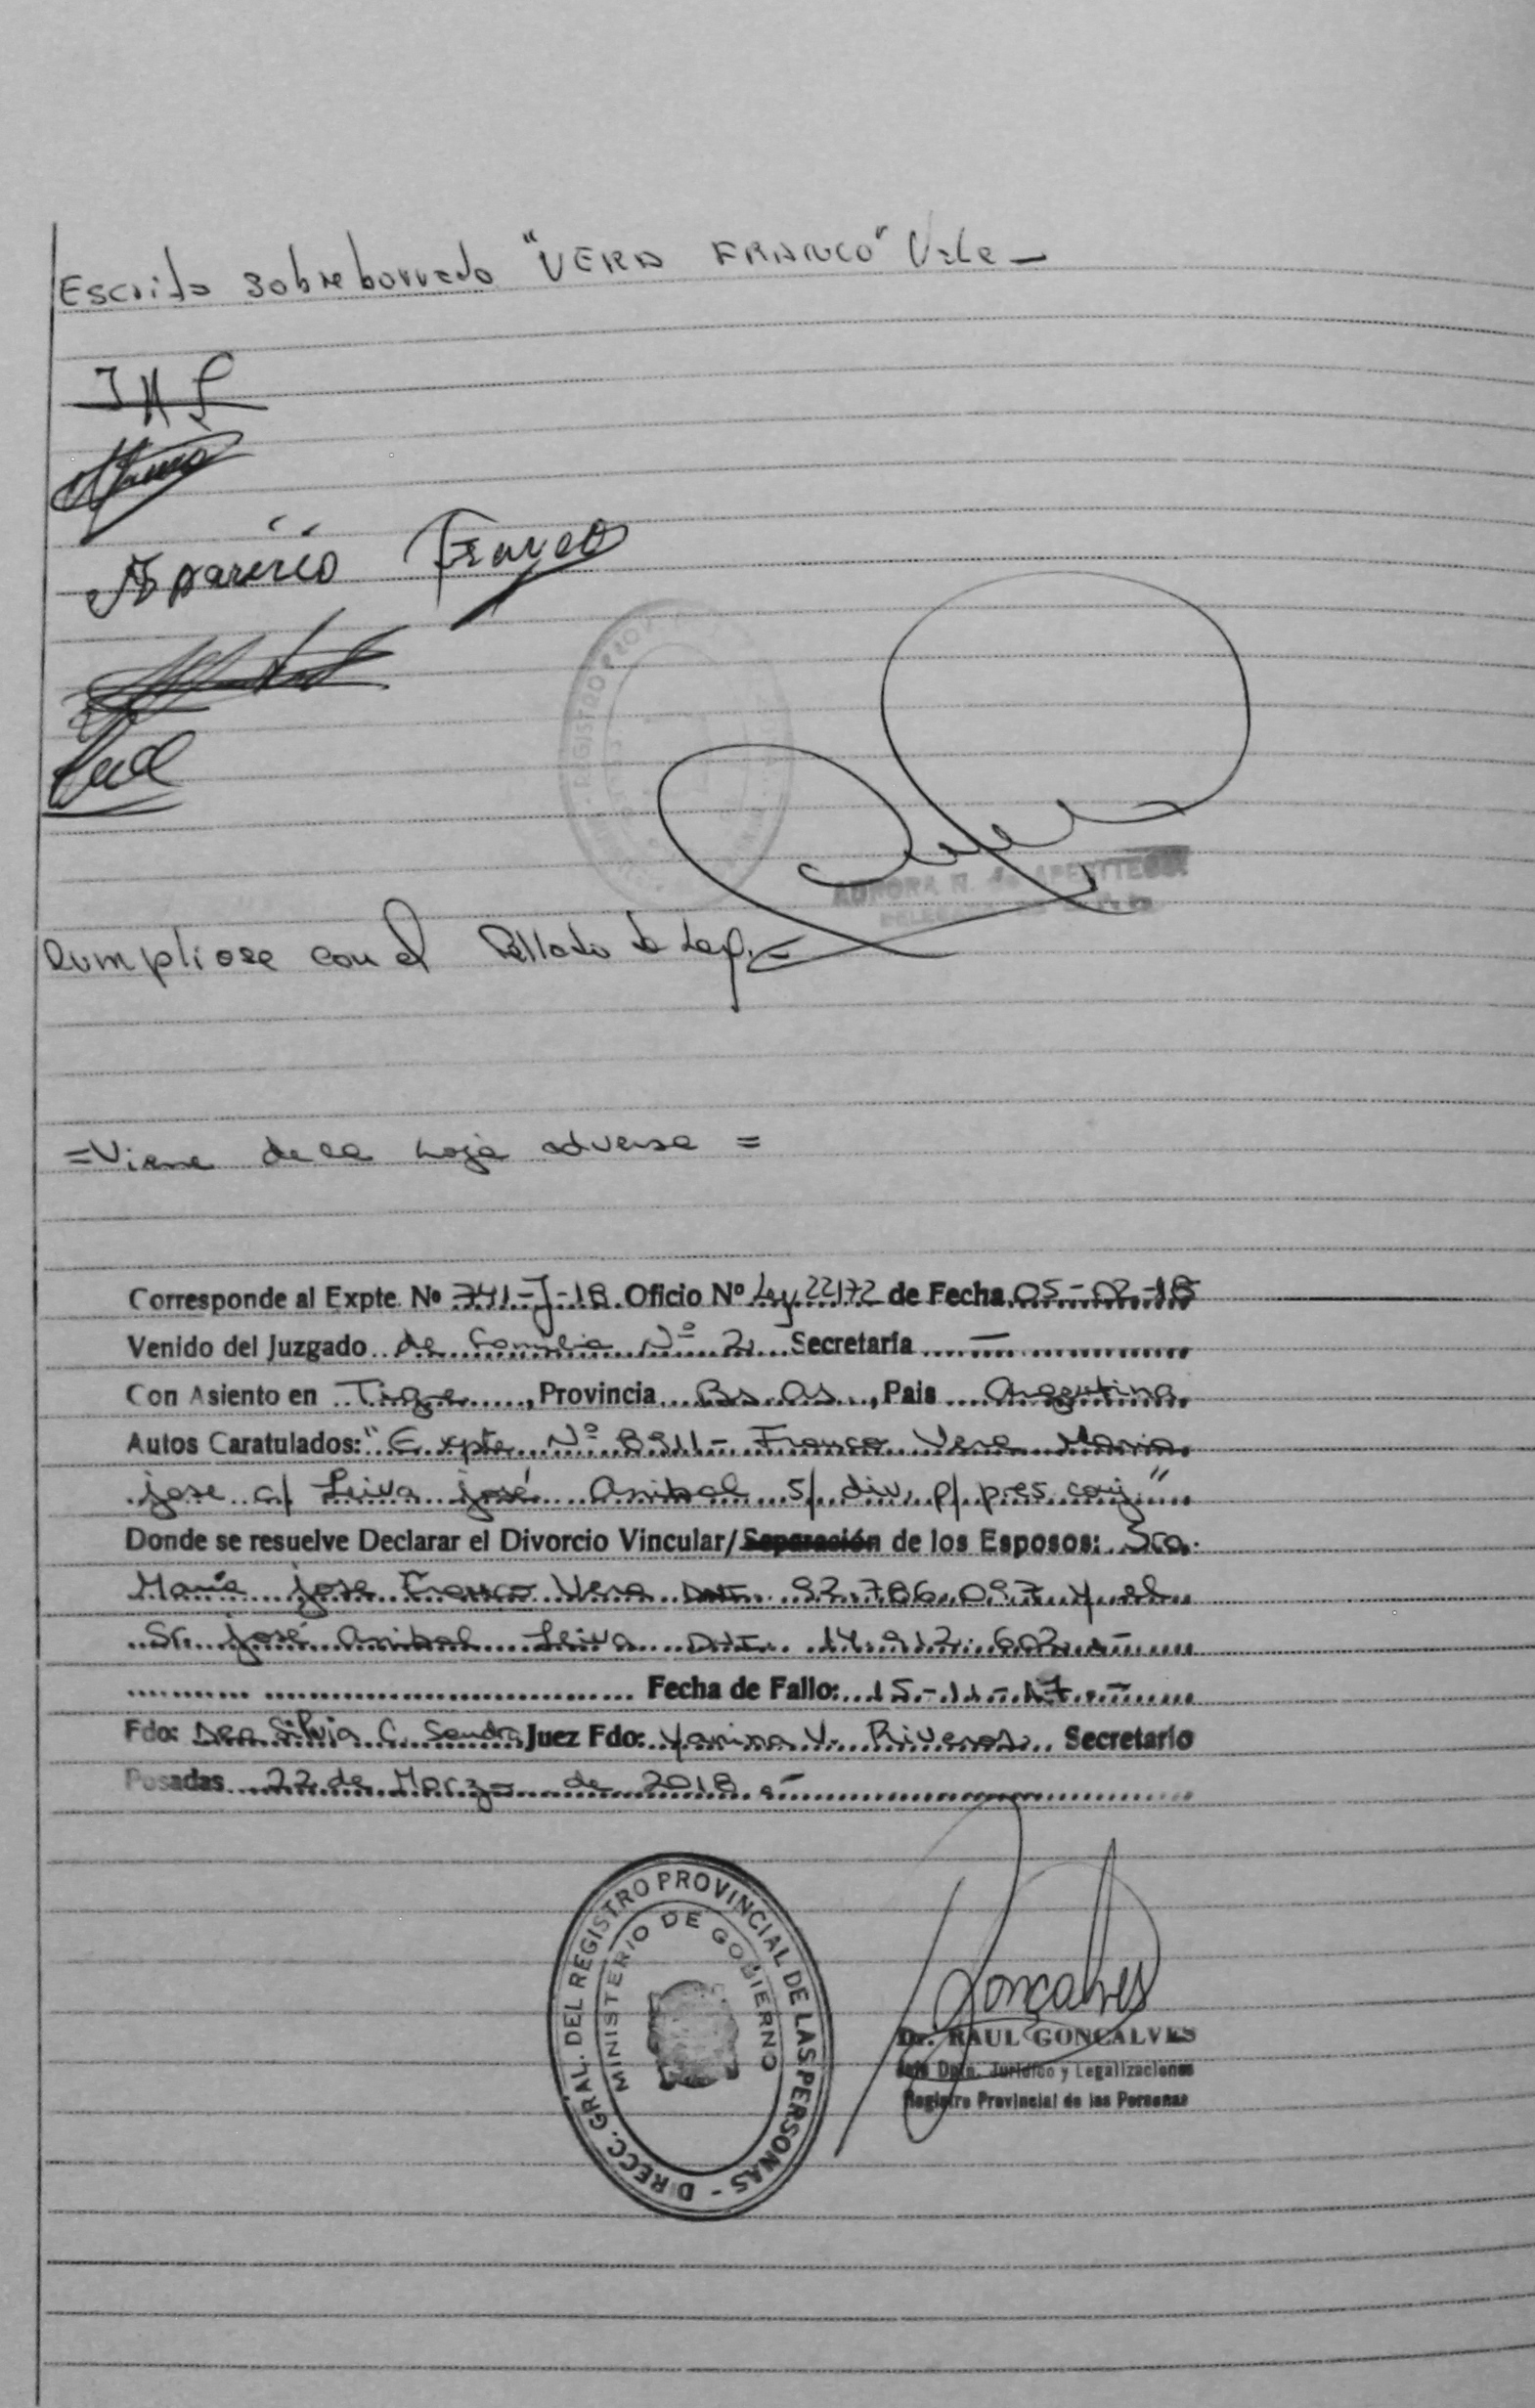 Escrito sobreborrado "VERA FRANCO" Vale -
JAL
Aparicio Franco
REGISTRO PROV
AURORA N. de APERTTEGUI
Cumpliose con el Sellado de Ley. =
= Viene de la hoja adversa =
Corresponde al Expte. Nº 741-J-18. Oficio Nº Ley 22172 de Fecha 05-02-18
Venido del Juzgado de Familia Nº 2. Secretaría —
Con Asiento en Tigre, Provincia Bs. As., Pais Argentina
Autos Caratulados: "Expte Nº 8911- Franco Vera Maria
jose c/ Leiva josé Anibal s/ div. p/ pres. conj"
Donde se resuelve Declarar el Divorcio Vincular/Separación de los Esposos: Sra.
María jose Franco Vera DNI. 92.786.097 y el
Sr. josé Anibal Leiva DNI. 14.912.602.-
Fecha de Fallo: 15-11-17.-
Fdo: Dra Silvia C. Sendra Juez Fdo: Yanina V. Riveros. Secretario
Posadas 22 de Marzo de 2018.-
DIRECC. GRAL. DEL REGISTRO PROVINCIAL DE LAS PERSONAS -
MINISTERIO DE GOBIERNO
Goncalves
Dr. RAUL GONCALVES
Jefe Dpto. Jurídico y Legalizaciones
Registro Provincial de las Personas